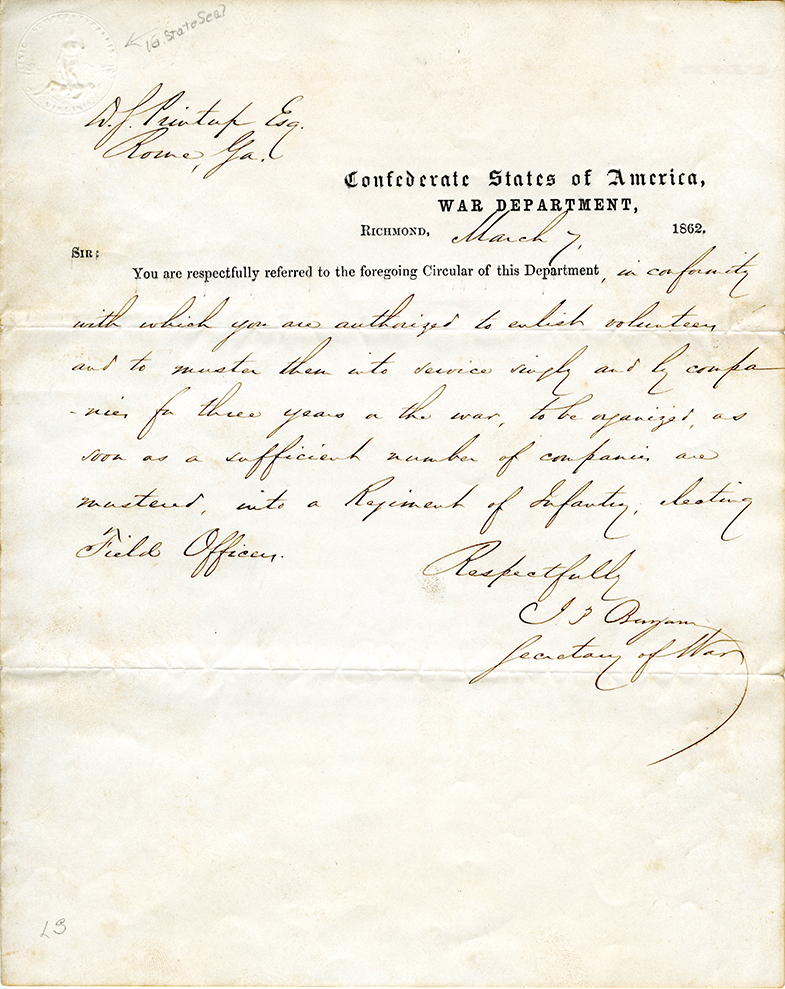 Va. State Seal
VIRGINIA
D. J. Printup Esq.
Rome, Ga.
Confederate States of America,
WAR DEPARTMENT,
RICHMOND, March 7, 1862.
SIR:
You are respectfully referred to the foregoing Circular of this Department, in conformity
with which you are authorized to enlist volunteers
and to muster them into service singly and by compa
-nies for three years or the war, to be organized, as
soon as a sufficient number of companies are
mustered, into a Regiment of Infantry, electing
Field Officers.
Respectfully
J P Benjamin
Secretary of War
L3